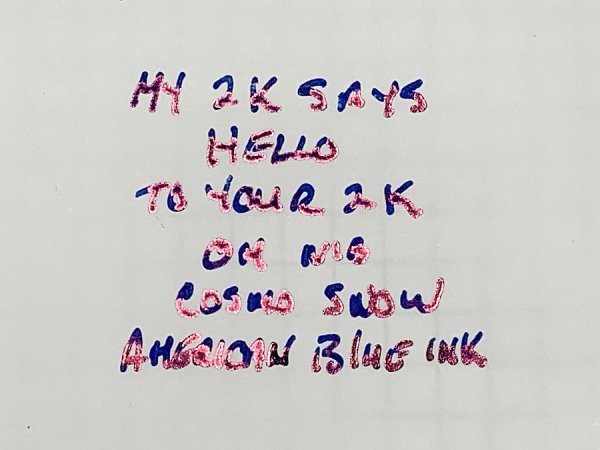 MY 2K SAYS
HELLO
TO YOUR 2K
ON
COSMO SNOW
AMERICAN BLUE INK